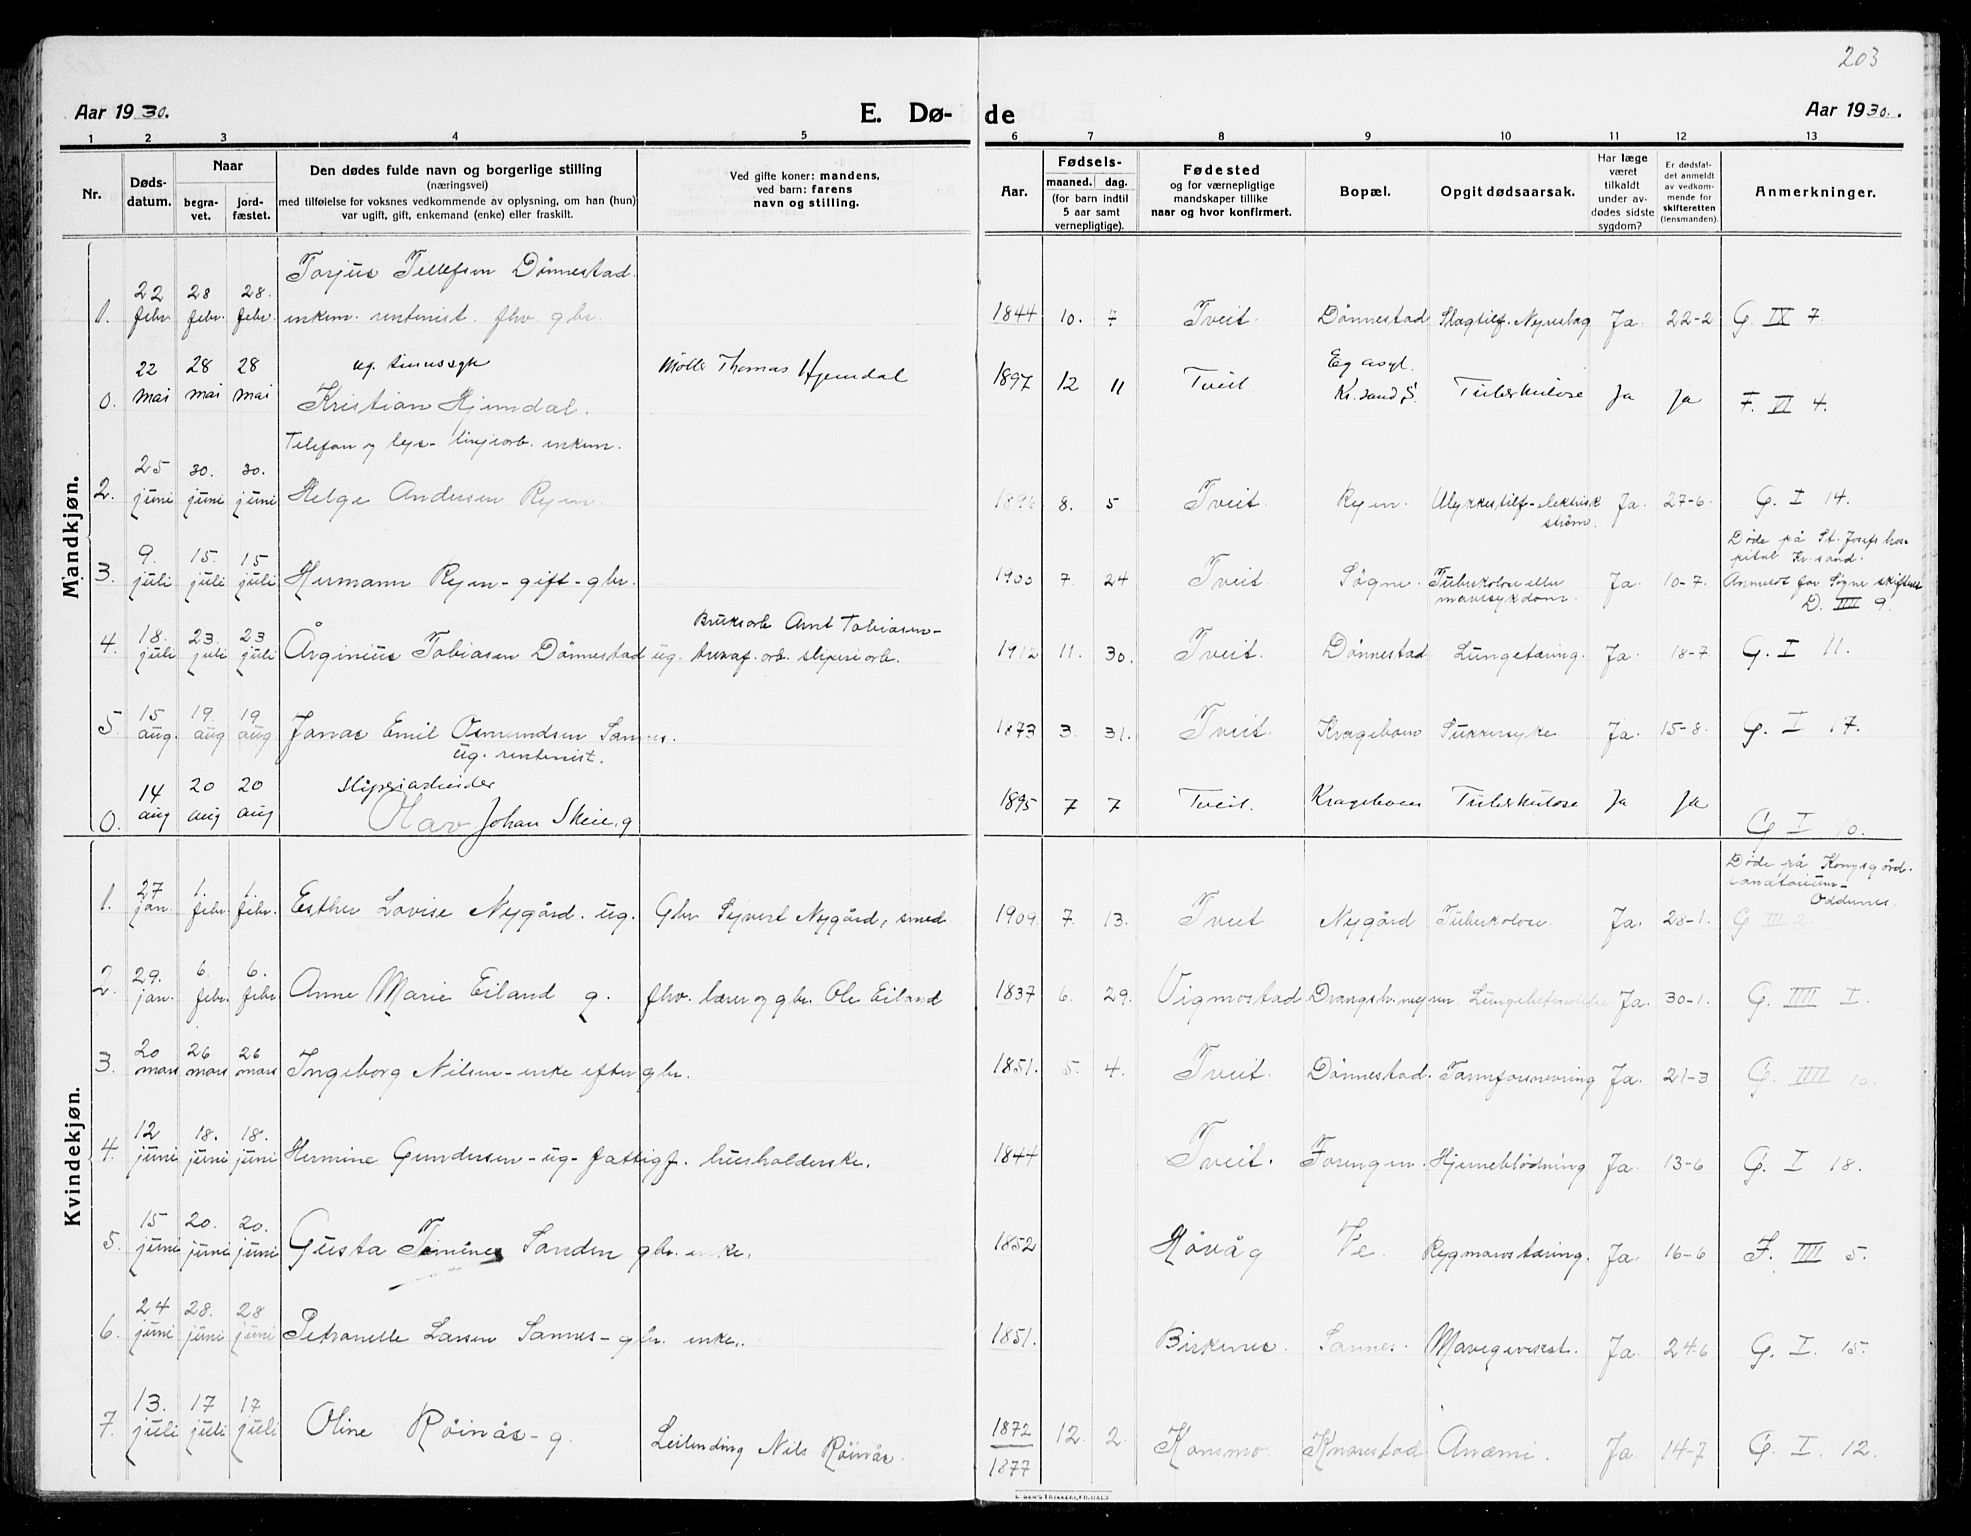 203
Aar 1930. E. Dø- de Aar 1930.
1 2 3 4 5 6 7 8 9 10 11 12 13
Nr. Døds-datum. Naar begra-vet. jord-fæstet. Den dødes fulde navn og borgerlige stilling (næringsvei) med tilføielse for voksnes vedkommende av oplysning, om han (hun) var ugift, gift, enkemand (enke) eller fraskilt. Ved gifte koner: mandens, ved barn: farens navn og stilling. Aar. Fødsels- maaned. dag. (for barn indtil 5 aar samt vernepligtige). Fødested og for værnepligtige mandskaper tillike naar og hvor konfirmert. Bopæl. Opgit dødsaarsak. Har læge været tilkaldt under av-dødes sidste sygdom? Er dødsfal-det anmeldt av vedkom-mende for skifteretten (lensmanden). Anmerkninger.
Mandkjøn.
Torjus Tellefsen Dønnestad.
1. 22 febr. 28 febr. 28. febr. enkem. rentenist. fhv. gbr. 1844 10. 7 Tveit. Dønnestad Slagtilf. Ja. 22-2 G. IX 7.
ug. sinnssyk Møller Thomas Hjemdal
0. 22 mai 28 mai 28 mai Kristian Hjemdal. 1897 12 11 Tveit Eg asyl. Kr.sand S. Tuberkulose Ja Ja F. VI 4.
Telefon og lys- linjearb. enkem.
2. 25 juni 30. juni 30. juni Helge Andersen Ryen. 1896 8. 5 Tveit. Ryen. Ulykkestilf- elektrisk strøm. Ja. 27-6. G. I 14.
Døde på St. Josefs hos-pital Kr.sand.
3. 9. juli 15. juli 15 juli Hermann Ryen - gift - gbr. 1900 7. 24 Tveit. Søgne. Tuberkolose eller mavesykdom. Ja. 10-7. Anmeldt for Søgne skifteret D. IIII 9.
Bruksarb Arnt Tobiasen-
4. 18. juli 23. juli 23 juli Årginius Tobiasen Dønnestad ug. sliperiarb. 1912 11. 30. Tveit. Dønnestad. Lungetæring. Ja. 18-7. G. I 11.
5. 15 aug. 19. aug 19 aug Jonas Emil Osmundsen Sannes. ug. rentenist. 1873 3. 31. Tveit. Krageboen Sukkersyke Ja. 15-8. G. I 17.
sliperiarbeider
0. 14 aug 20 aug 20 aug Olav Johan Skeie, g 1895 7 7 Tveit. Krageboen Tuberkulose Ja Ja G I 10.
Kvindekjøn.
Døde på Kongsgård-sanatorium- Oddernes.
1. 27 jan. 1. febr. 1. febr. Esther Lovise Nygård. ug. Gbr Syvert Nygård, smed 1909. 7. 13. Tveit Nygård Tuberkolose. Ja. 28-1. G III 2.
2. 29. jan. 6. febr. 6. febr Anne Marie Eiland g. fhv. lærer og gbr. Ole Eiland 1837 6. 29. Vigmostad. Ja. 30-1. G. IIII I.
3. 20 mars 26 mars 26 mars Ingeborg Nilsen - enke efter gbr. 1851. 5. 4. Tveit. Dønnestad. Tarmforsnevring Ja. 21-3 G. IIII 10.
4. 12 juni 18. juni 18. juni Hermine Gundersen - ug - fattigf. husholderske. 1844 Tveit. Foreng­en. Hjerneblødning Ja. 13-6 G. I 18.
5. 15 juni 20. juni 20. juni Gusta Temine Sanden gbr. enke. 1852 Høvåg Ve. Rygmarvstæring. Ja. 16-6 F. IIII 5.
6. 24 juni 28. juni 28 juni Petronelle Larsen Sannes - gbr. enke.. 1851. Birkenes. Sannes. Mavegevekst. Ja. 24-6 G. I. 15.
7. 13. juli 17 juli 17 juli Oline Røinås - g. Leilending Nils Røinås. 1872 1877 12. 2. Konsmo. Knarestad Anæmi. Ja 14-7 G. I. 12.